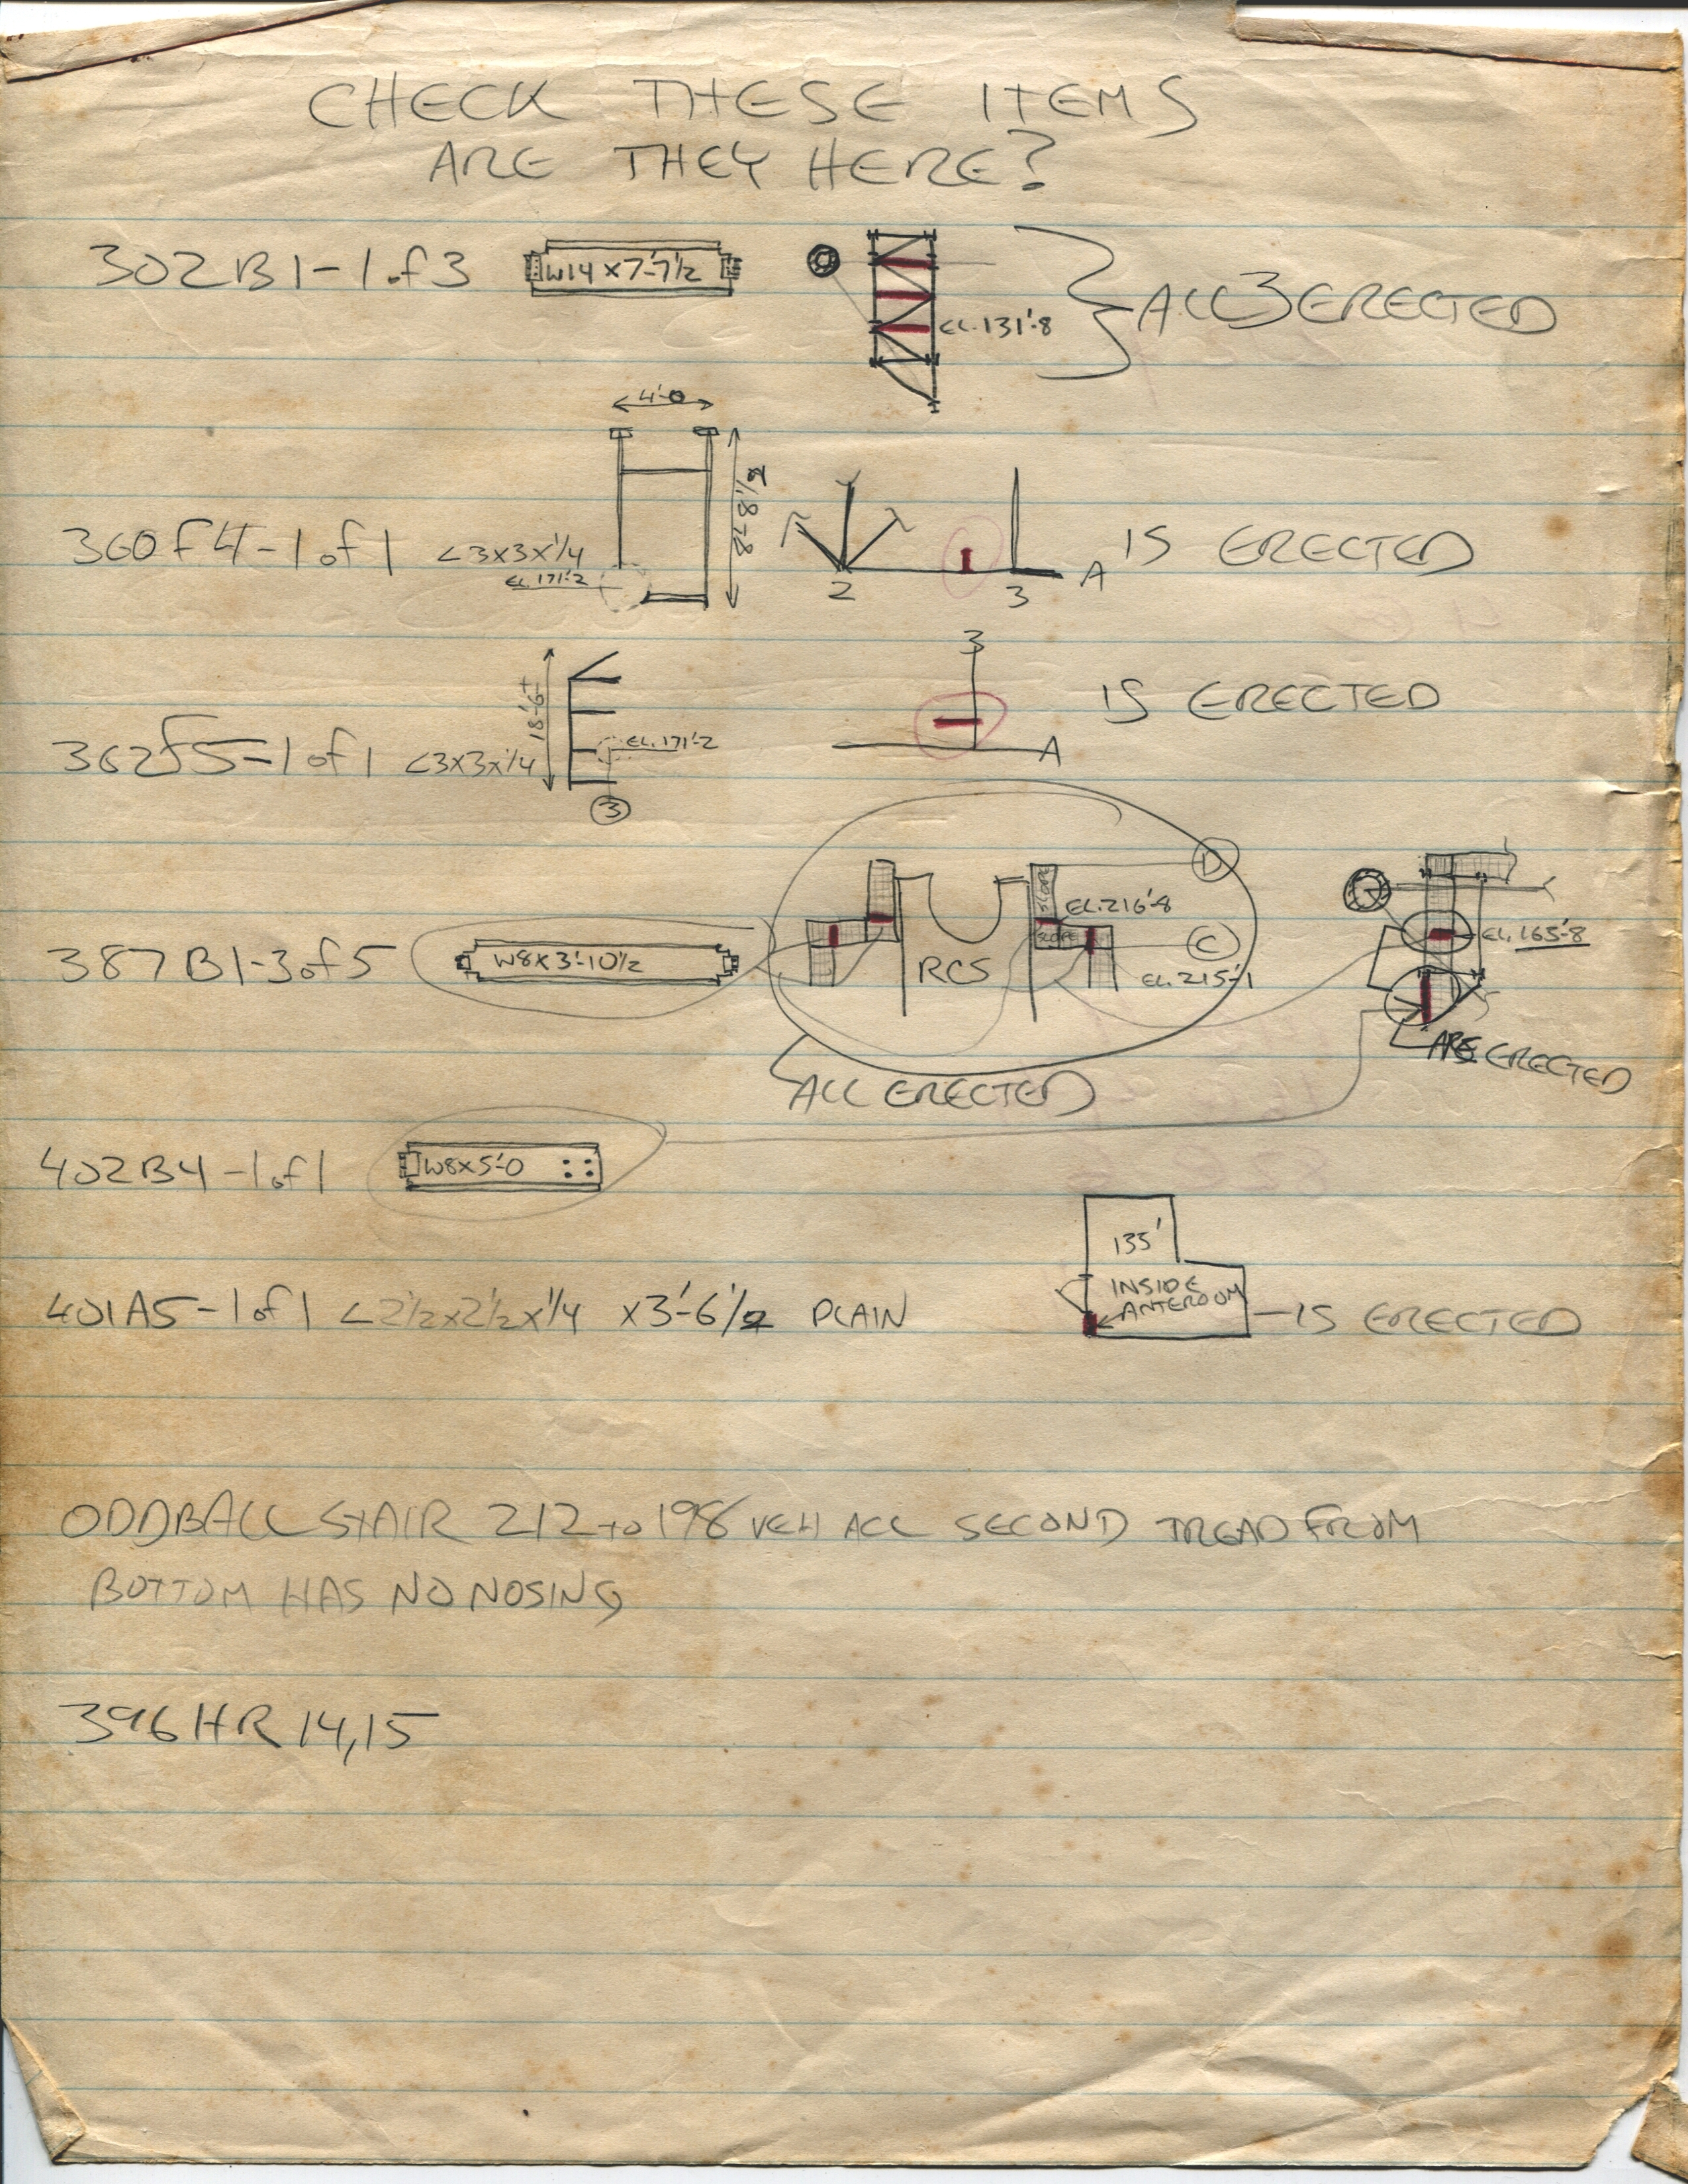 CHECK THESE ITEMS
ARE THEY HERE?
302B1-1 of 3 W14 x 7'-7 1/2 EL. 131'-8 ALL 3 ERECTED
4'-0
8'-8 1/2
360F4-1 of 1 <3x3x1/4 EL. 171'-2 2 3 A IS ERECTED
18'-6"+
362F5-1 of 1 <3x3x1/4 EL. 171'-2 3 3 A IS ERECTED
D
SLOPE EL. 216'-8
387B1-3 of 5 W8 x 3'-10 1/2 RCS SLOPE C EL. 165'-8
EL. 215'-1
ALL ERECTED ARE ERECTED
402B4-1 of 1 W8x5'-0
135'
401A5-1 of 1 <2 1/2x2 1/2x1/4 x3'-6 1/2 PLAIN INSIDE ANTEROOM - IS ERECTED
ODDBALL STAIR 212 to 198 VEH ACC SECOND TREAD FROM
BOTTOM HAS NO NOSING
396HR 14,15